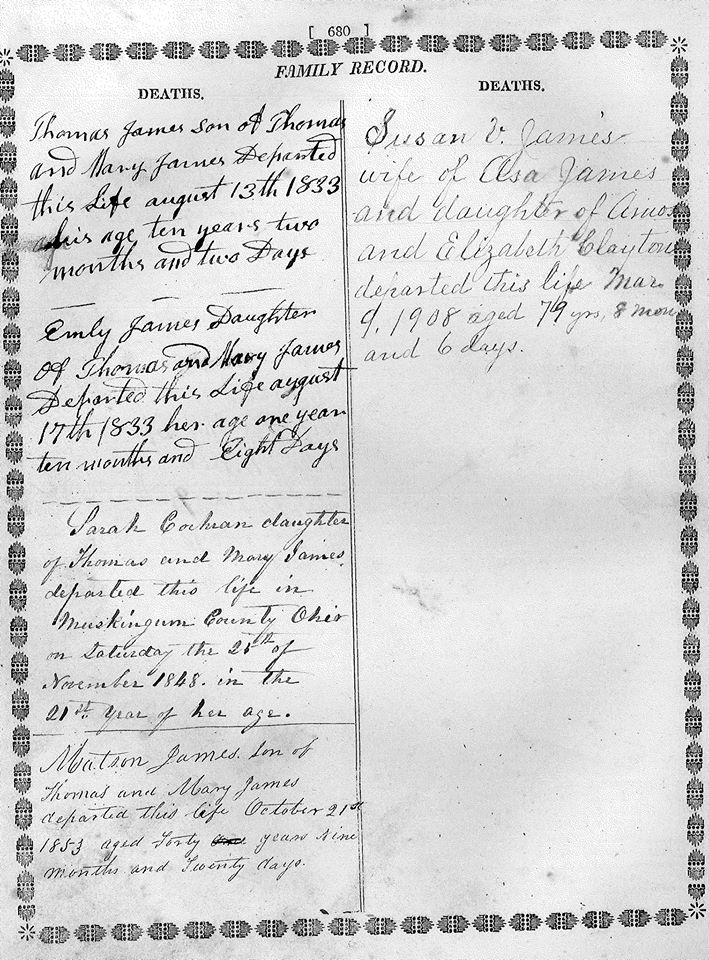 [ 680 ]
FAMILY RECORD.
DEATHS.
Thomas James son of Thomas
and Mary James Departed
this Life august 13th 1833
his age ten years two
months and two Days
Emily James Daughter
Of Thomas and Mary James
Departed this Life august
17th 1833 her age one year
ten months and Eight Days
Sarah Cochran daughter
of Thomas and Mary James
departed this life in
Muskingum County Ohio
on Saturday the 25th of
November 1848. in the
21st year of her age.
Matson James son of
Thomas and Mary James
departed this life October 21st
1853 aged Forty years Nine
months and Twenty days.
DEATHS.
Susan V. James
wife of Asa James
and daughter of Amos
and Elizabeth Clayton
departed this life Mar.
9, 1908 aged 79 yrs, 8 mon
and 6 days.